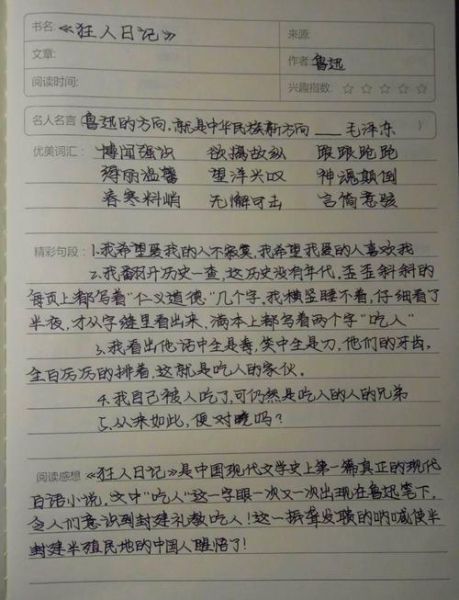 书名:《狂人日记》 来源:
文章: 作者:鲁迅
阅读时间: 兴趣指数: ☆ ☆ ☆ ☆ ☆
名人名言 鲁迅的方向,就是中华民族新方向 ——毛泽东
优美词汇: 博闻强识 欲擒故纵 跟跟跑跑
绮丽温馨 望洋兴叹 神魂颠倒
春寒料峭 无懈可击 言简意骇
精彩句段: 1.我希望爱我的人不寂寞,我希望我爱的人喜欢我
2.我翻开历史一查,这历史没有年代,歪歪斜斜的
每页上都写着"仁义道德"几个字,我横竖睡不着,仔细看了
半夜,才从字缝里看出来,满本上都写着两个字"吃人"
3.我看出他话中全是毒,笑中全是刀,他们的牙齿,
全白厉厉的排着,这就是吃人的家伙。
4.我自己被人吃了,可仍然是吃人的人的兄弟
5.从来如此,便对吗?
阅读感想 《狂人日记》是中国现代文学史上第一篇真正的现代
白话小说,文中"吃人"这一字眼一次又一次出现在鲁迅笔下,
令人们意识到封建礼教吃人!这一振聋发聩的呐喊使半
封建半殖民地的中国人醒悟了!